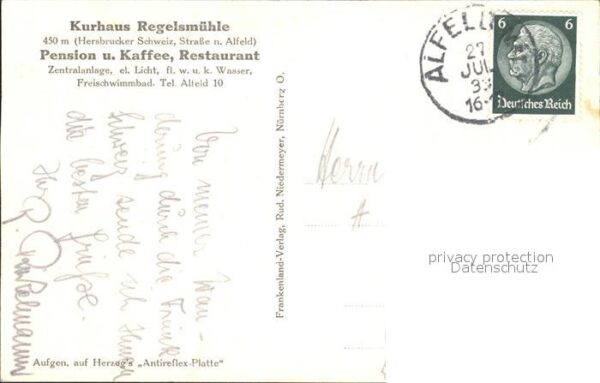 Kurhaus Regelsmühle
450 m (Hersbrucker Schweiz, Straße n. Alfeld)
Pension u. Kaffee, Restaurant
Zentralanlage, el. Licht, fl. w. u. k. Wasser,
Freischwimmbad. Tel. Alfeld 10
Von meiner Wan-
derung durch die Fränk
Schweiz sende ich Ihnen
die besten Grüße.
Ihr
Aufgen. auf Herzog's „Antireflex-Platte“
Frankenland-Verlag, Rud. Niedermeyer, Nürnberg O.
ALFELD
27
JUL
16-
6 6
Deutsches Reich
Herrn
A
privacy protection
Datenschutz